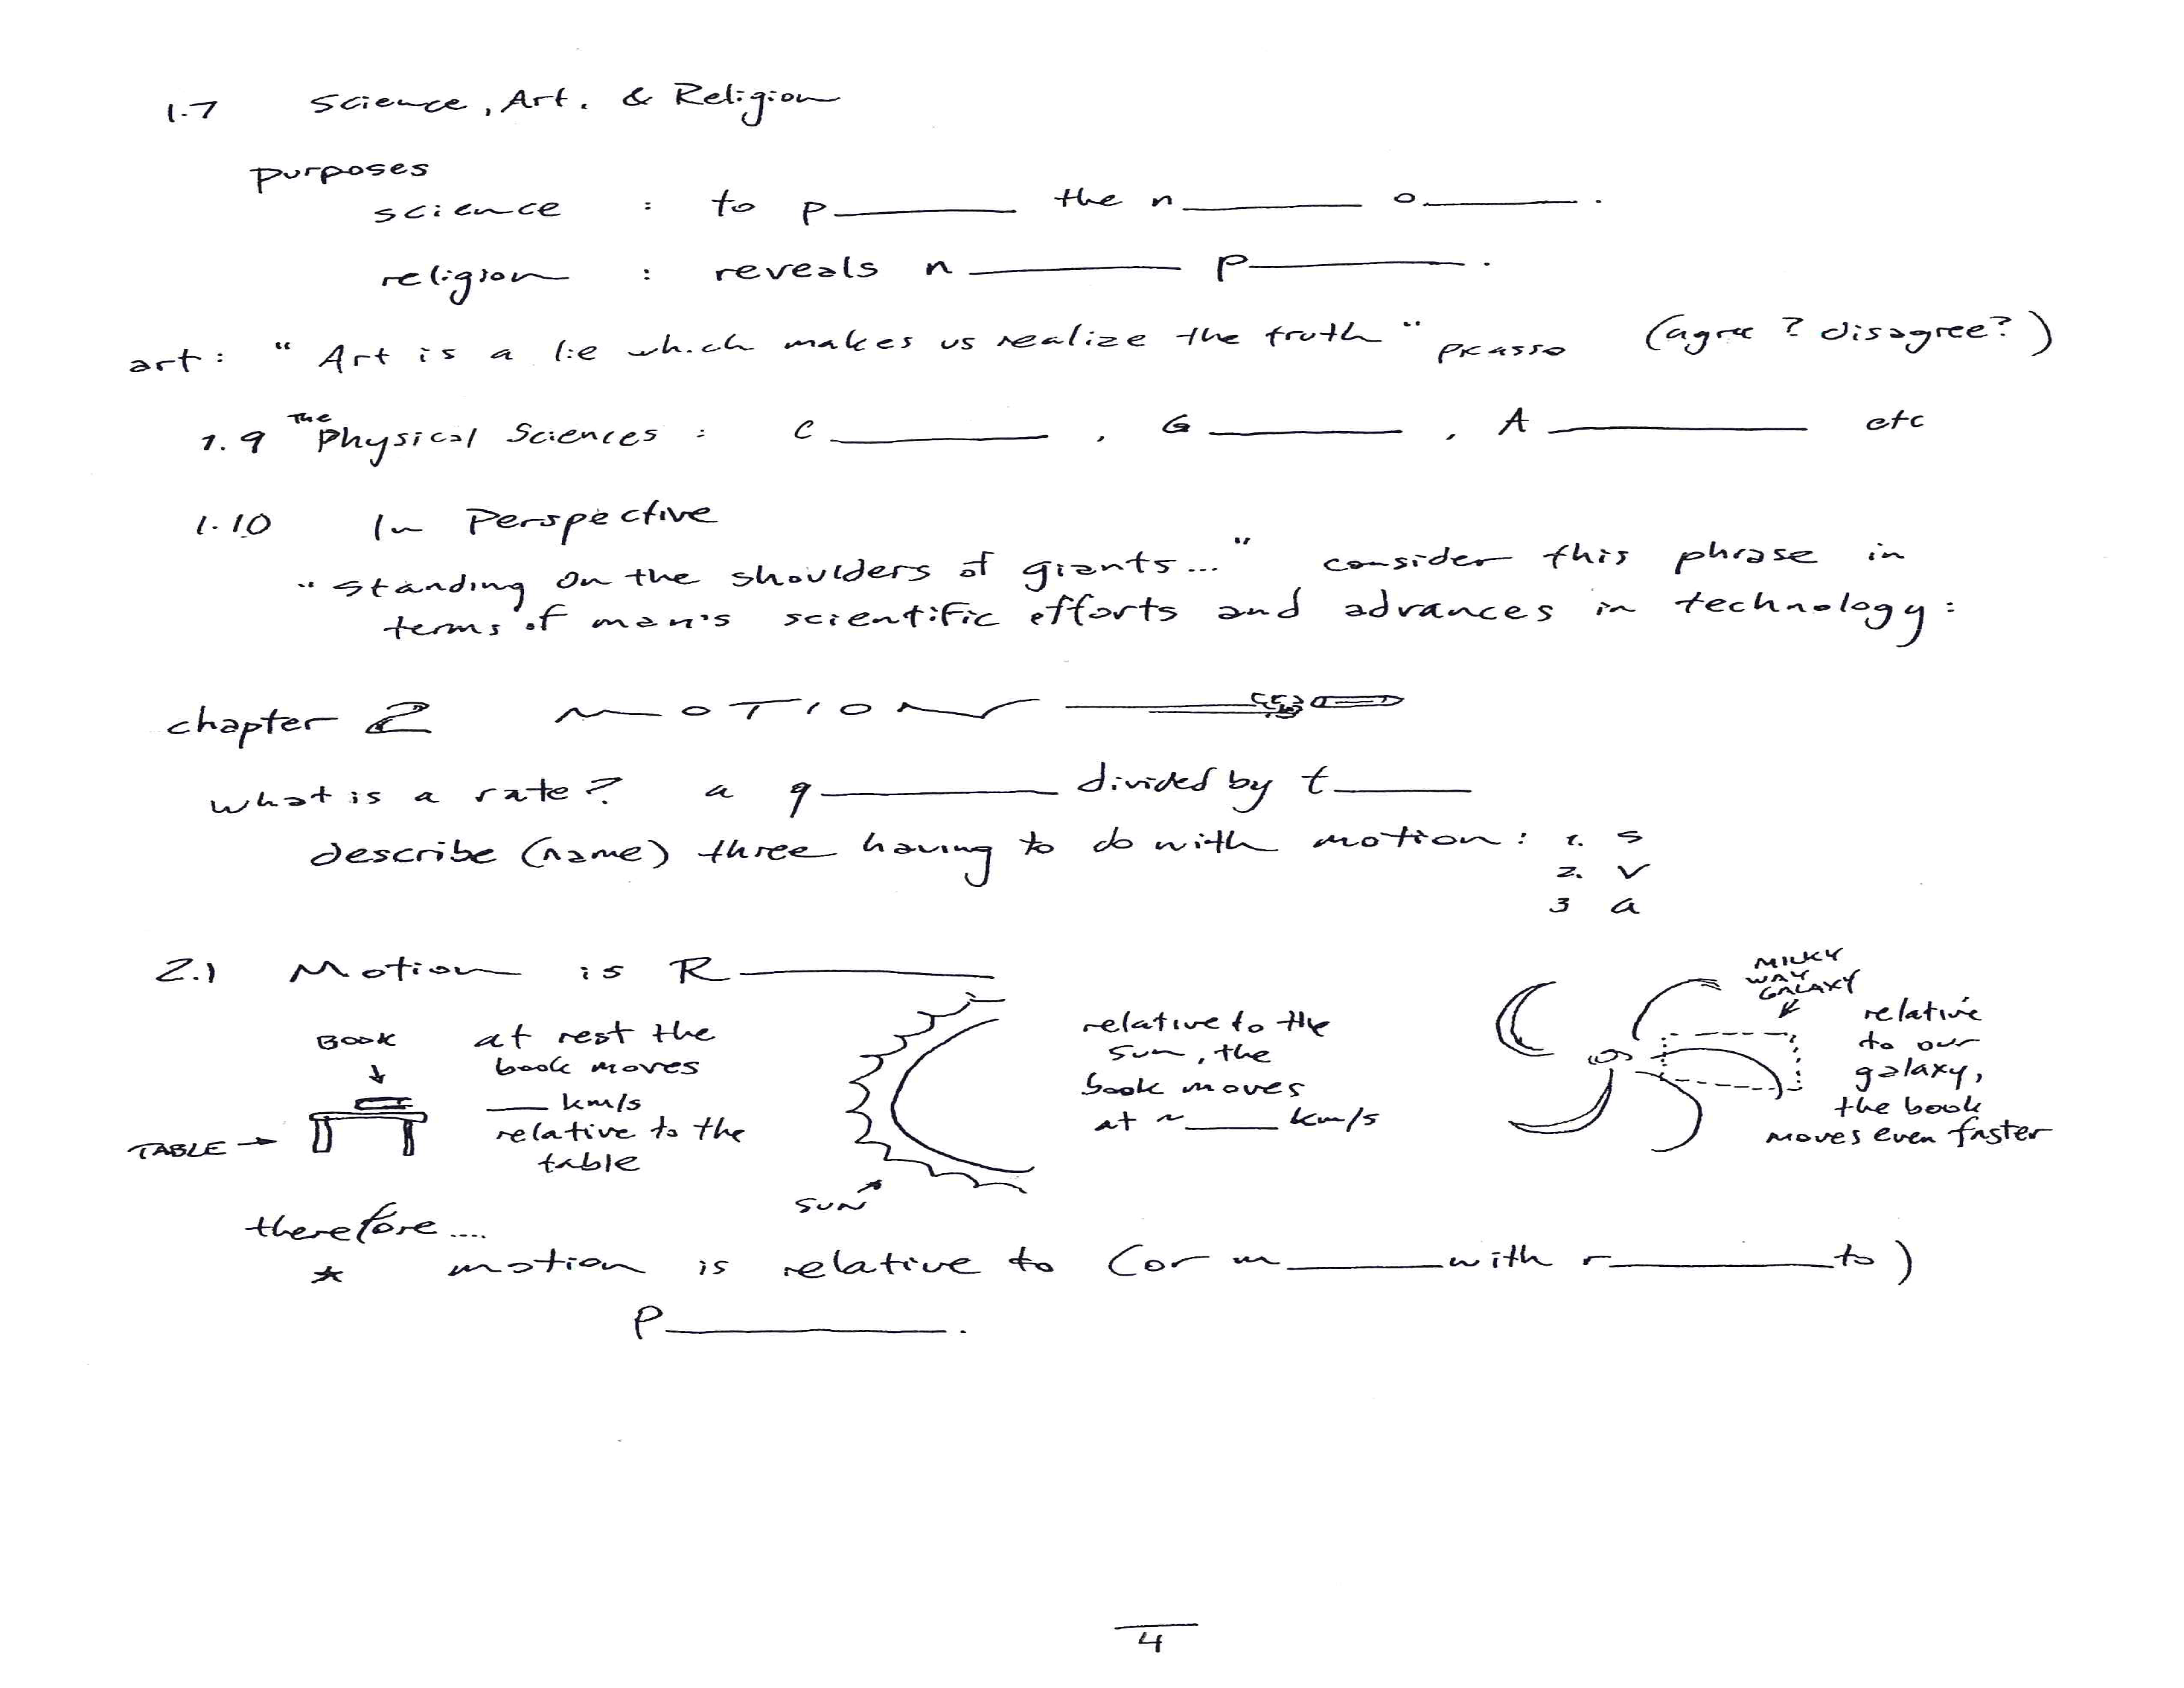 1.7 Science, Art, & Religion
purposes
science : to p______ the n______ o______.
religion : reveals n______ p______.
art: "Art is a lie which makes us realize the truth" Picasso (agree? disagree?)
1.9 The Physical Sciences: C______, G______, A______ etc
1.10 In Perspective
"standing on the shoulders of giants..." consider this phrase in
terms of man's scientific efforts and advances in technology:
chapter 2 MOTION
what is a rate? a q______ divided by t______
describe (name) three having to do with motion: 1. s
2. v
3 a
2.1 Motion is R______
BOOK
TABLE
at rest the
book moves
___ km/s
relative to the
table
SUN
relative to the
sun, the
book moves
at ~____ km/s
MILKY
WAY
GALAXY
relative
to our
galaxy,
the book
moves even faster
therefore....
* motion is relative to (or m______ with r______ to)
P______.
4